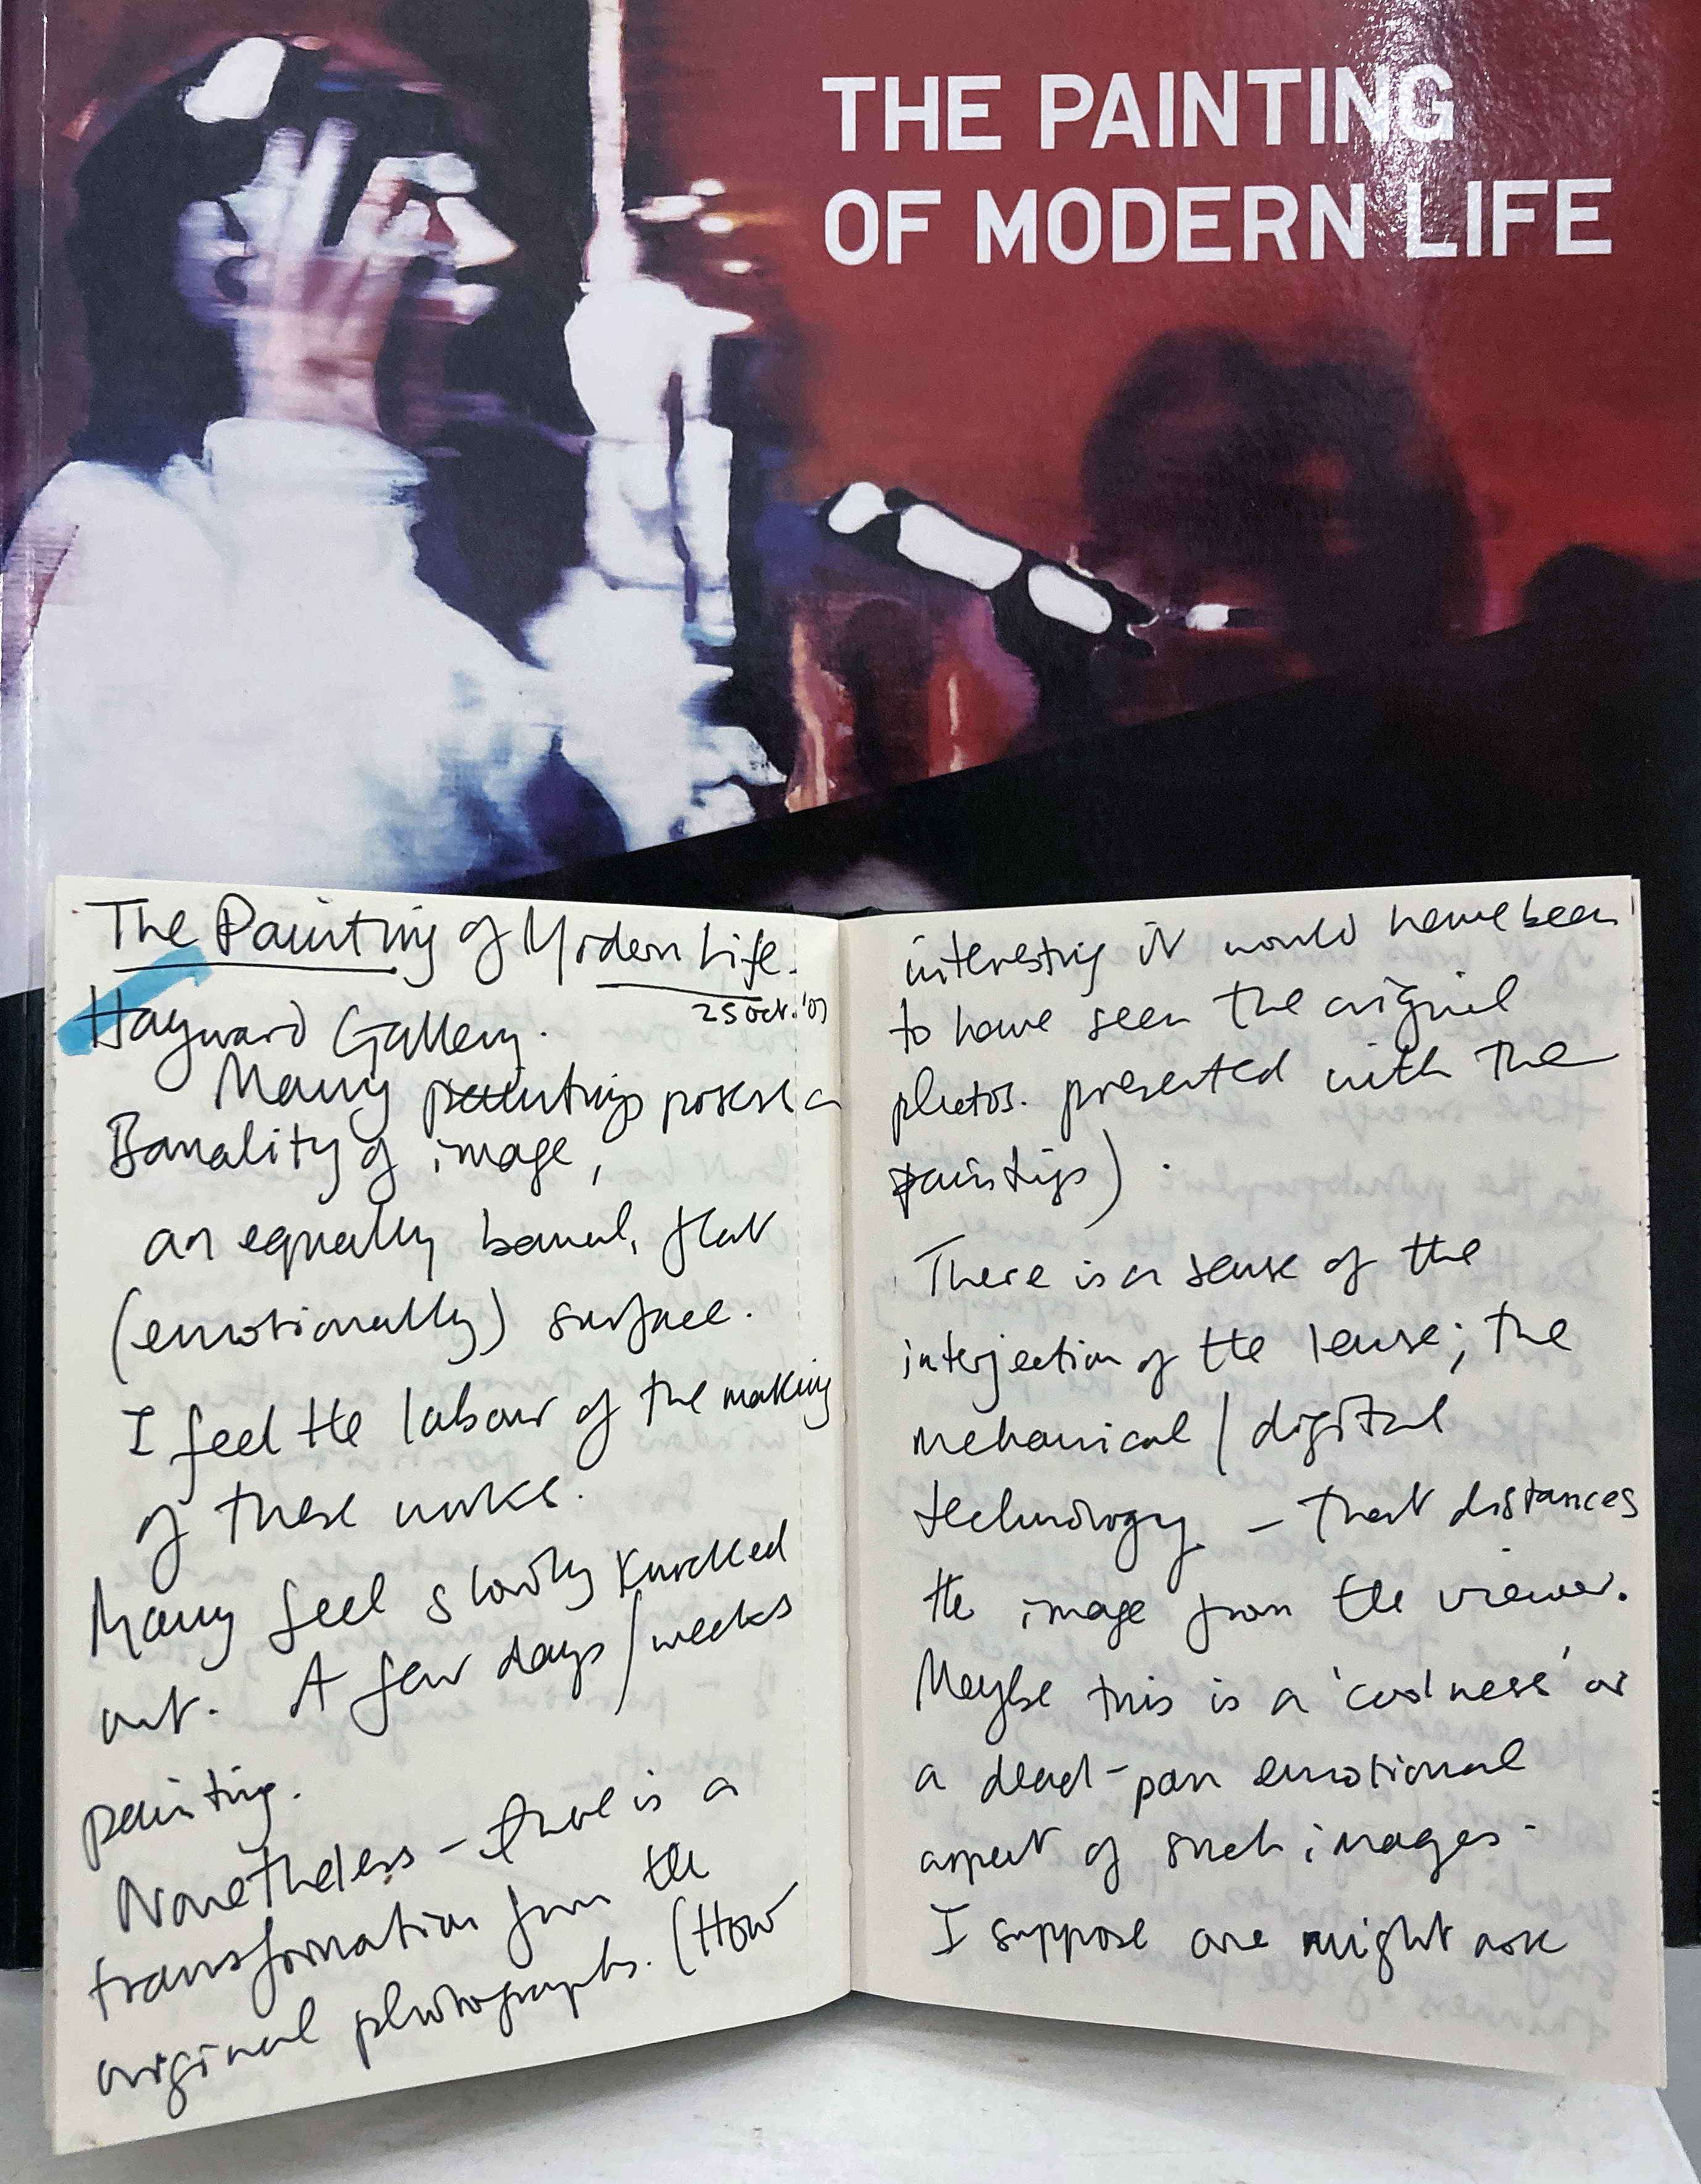 THE PAINTING
OF MODERN LIFE
The Painting of Modern Life.
25 Oct. '07
Hayward Gallery.
Many paintings possess a
Banality of image,
an equally banal, flat
(emotionally) surface.
I feel the labour of the making
of these works.
Many feel slowly knocked
out. A few days/weeks
painting.
Nonetheless – there is a
transformation from the
original photographs. (How
interesting it would have been
to have seen the original
photos. presented with the
paintings).
There is a sense of the
interjection of the lense; the
mechanical / digital
technology – that distances
the image from the viewer.
Maybe this is a 'coolness' or
a dead-pan emotional
aspect of such images.
I suppose one might ask